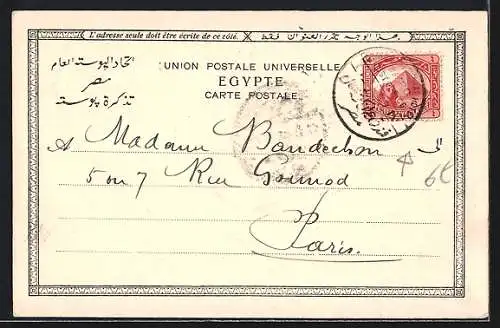 L'adresse seule doit être écrite de ce côté.
هذا الوجه محرر للعنوان فقط
اتحاد البوسته العام
مصر
تذكرة بوسته
UNION POSTALE UNIVERSELLE
EGYPTE
CARTE POSTALE
Madame Bandechon
5 ou 7 Rue Gounod
Paris.
6€